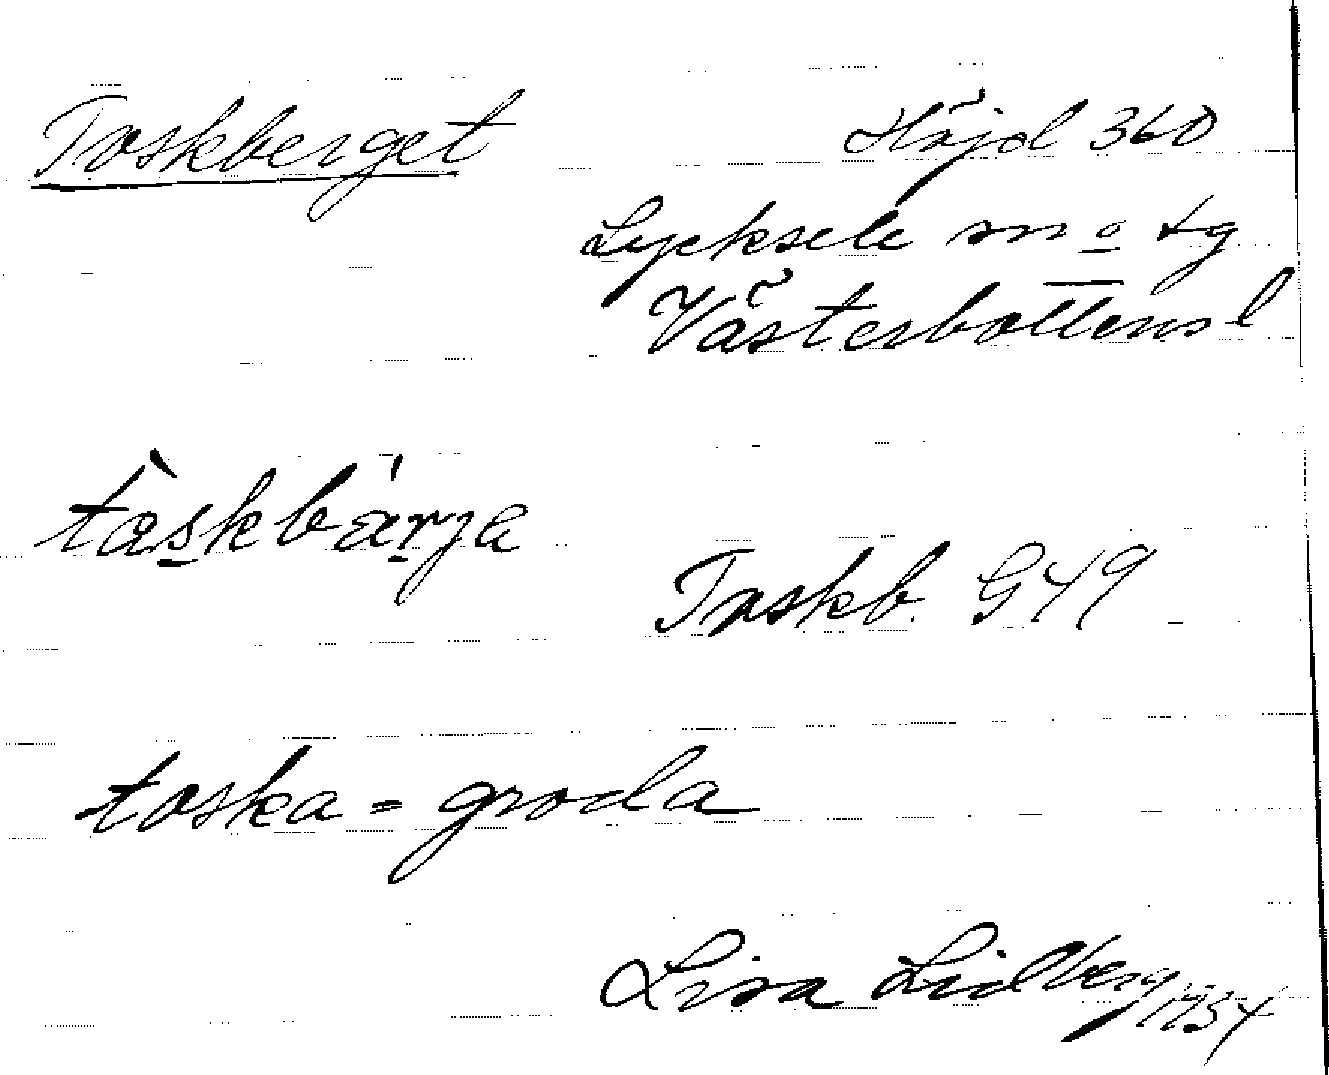 Toskberget
Höjd 360
Lycksele m o tg
Västerbottens l
tàskbä́rja
Toskb. G49
toska = groda
Lisa Lidberg 1934